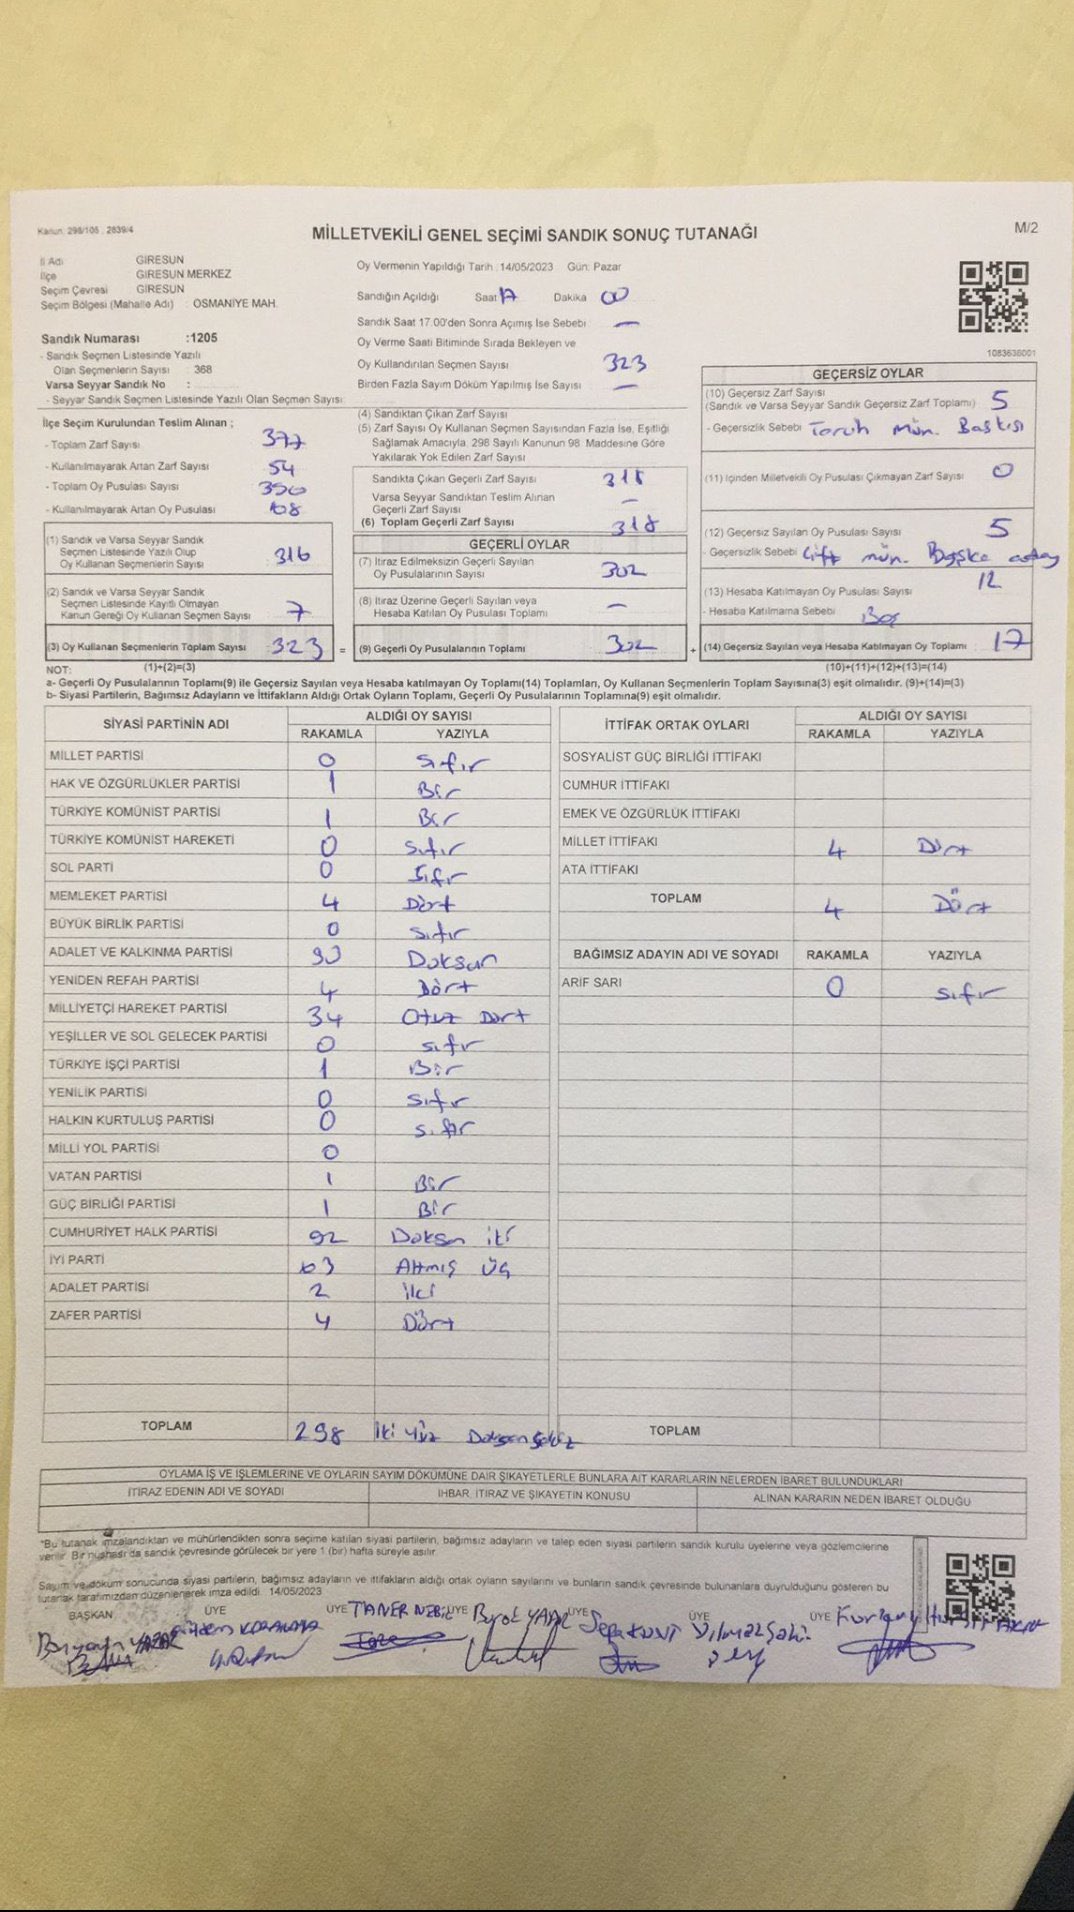 Kanun: 298/105 , 2839/4
MİLLETVEKİLİ GENEL SEÇİMİ SANDIK SONUÇ TUTANAĞI
M/2
İl Adı GİRESUN
İlçe GİRESUN MERKEZ
Seçim Çevresi GİRESUN
Seçim Bölgesi (Mahalle Adı) : OSMANİYE MAH.
Sandık Numarası :1205
- Sandık Seçmen Listesinde Yazılı
Olan Seçmenlerin Sayısı : 368
Varsa Seyyar Sandık No :
- Seyyar Sandık Seçmen Listesinde Yazılı Olan Seçmen Sayısı:
Oy Vermenin Yapıldığı Tarih :14/05/2023 Gün: Pazar
Sandığın Açıldığı Saat 17 Dakika 00
Sandık Saat 17.00'den Sonra Açımış İse Sebebi : —
Oy Verme Saati Bitiminde Sırada Bekleyen ve
Oy Kullandırılan Seçmen Sayısı 323
Birden Fazla Sayım Döküm Yapılmış İse Sayısı —
1083636001
İlçe Seçim Kurulundan Teslim Alınan ;
- Toplam Zarf Sayısı 377
- Kullanılmayarak Artan Zarf Sayısı 54
- Toplam Oy Pusulası Sayısı 390
- Kullanılmayarak Artan Oy Pusulası 68
(1) Sandık ve Varsa Seyyar Sandık
Seçmen Listesinde Yazılı Olup
Oy Kullanan Seçmenlerin Sayısı 316
(2) Sandık ve Varsa Seyyar Sandık
Seçmen Listesinde Kayıtlı Olmayan
Kanun Gereği Oy Kullanan Seçmen Sayısı 7
(3) Oy Kullanan Seçmenlerin Toplam Sayısı 323 =
(4) Sandıktan Çıkan Zarf Sayısı
(5) Zarf Sayısı Oy Kullanan Seçmen Sayısından Fazla İse, Eşitliği
Sağlamak Amacıyla, 298 Sayılı Kanunun 98. Maddesine Göre
Yakılarak Yok Edilen Zarf Sayısı
Sandıkta Çıkan Geçerli Zarf Sayısı 318
Varsa Seyyar Sandıktan Teslim Alınan
Geçerli Zarf Sayısı —
(6) Toplam Geçerli Zarf Sayısı 318
GEÇERLİ OYLAR
(7) İtiraz Edilmeksizin Geçerli Sayılan
Oy Pusulalarının Sayısı 302
(8) İtiraz Üzerine Geçerli Sayılan veya
Hesaba Katılan Oy Pusulası Toplamı —
(9) Geçerli Oy Pusulalarının Toplamı 302 +
GEÇERSİZ OYLAR
(10) Geçersiz Zarf Sayısı
(Sandık ve Varsa Seyyar Sandık Geçersiz Zarf Toplamı) 5
- Geçersizlik Sebebi Tercih Mün. Baskısı
(11) İçinden Milletvekili Oy Pusulası Çıkmayan Zarf Sayısı 0
(12) Geçersiz Sayılan Oy Pusulası Sayısı 5
- Geçersizlik Sebebi Çift mün. Başka aday
(13) Hesaba Katılmayan Oy Pusulası Sayısı 12
- Hesaba Katılmama Sebebi Boş
(14) Geçersiz Sayılan veya Hesaba Katılmayan Oy Toplamı 17
NOT: (1)+(2)=(3) (10)+(11)+(12)+(13)=(14)
a- Geçerli Oy Pusulalarının Toplamı(9) ile Geçersiz Sayılan veya Hesaba katılmayan Oy Toplamı(14) Toplamları, Oy Kullanan Seçmenlerin Toplam Sayısına(3) eşit olmalıdır. (9)+(14)=(3)
b- Siyasi Partilerin, Bağımsız Adayların ve İttifakların Aldığı Ortak Oyların Toplamı, Geçerli Oy Pusulalarının Toplamına(9) eşit olmalıdır.
SİYASİ PARTİNİN ADI ALDIĞI OY SAYISI
RAKAMLA YAZIYLA
MİLLET PARTİSİ 0 Sıfır
HAK VE ÖZGÜRLÜKLER PARTİSİ 1 Bir
TÜRKİYE KOMÜNİST PARTİSİ 1 Bir
TÜRKİYE KOMÜNİST HAREKETİ 0 Sıfır
SOL PARTİ 0 Sıfır
MEMLEKET PARTİSİ 4 Dört
BÜYÜK BİRLİK PARTİSİ 0 Sıfır
ADALET VE KALKINMA PARTİSİ 90 Doksan
YENİDEN REFAH PARTİSİ 4 Dört
MİLLİYETÇİ HAREKET PARTİSİ 34 Otuz Dört
YEŞİLLER VE SOL GELECEK PARTİSİ 0 Sıfır
TÜRKİYE İŞÇİ PARTİSİ 1 Bir
YENİLİK PARTİSİ 0 Sıfır
HALKIN KURTULUŞ PARTİSİ 0 Sıfır
MİLLİ YOL PARTİSİ 0
VATAN PARTİSİ 1 Bir
GÜÇ BİRLİĞİ PARTİSİ 1 Bir
CUMHURİYET HALK PARTİSİ 92 Doksan iki
İYİ PARTİ 63 Altmış Üç
ADALET PARTİSİ 2 iki
ZAFER PARTİSİ 4 Dört
TOPLAM 298 İki Yüz Doksan Sekiz
İTTİFAK ORTAK OYLARI ALDIĞI OY SAYISI
RAKAMLA YAZIYLA
SOSYALİST GÜÇ BİRLİĞİ İTTİFAKI
CUMHUR İTTİFAKI
EMEK VE ÖZGÜRLÜK İTTİFAKI
MİLLET İTTİFAKI 4 Dört
ATA İTTİFAKI
TOPLAM 4 Dört
BAĞIMSIZ ADAYIN ADI VE SOYADI RAKAMLA YAZIYLA
ARİF SARI 0 Sıfır
TOPLAM
OYLAMA İŞ VE İŞLEMLERİNE VE OYLARIN SAYIM DÖKÜMÜNE DAİR ŞİKAYETLERLE BUNLARA AİT KARARLARIN NELERDEN İBARET BULUNDUKLARI
İTİRAZ EDENİN ADI VE SOYADI İHBAR, İTİRAZ VE ŞİKAYETİN KONUSU ALINAN KARARIN NEDEN İBARET OLDUĞU
*Bu tutanak imzalandıktan ve mühürlendikten sonra seçime katılan siyasi partilerin, bağımsız adayların ve talep eden siyasi partilerin sandık kurulu üyelerine veya gözlemcilerine
verilir. Bir nüshası da sandık çevresinde görülecek bir yere 1 (bir) hafta süreyle asılır.
Sayım ve döküm sonucunda siyasi partilerin, bağımsız adayların ve ittifakların aldığı ortak oyların sayılarını ve bunların sandık çevresinde bulunanlara duyrulduğunu gösteren bu
tutanak tarafımızdan düzenlenerek imza edildi. 14/05/2023
BAŞKAN ÜYE ÜYE ÜYE ÜYE ÜYE ÜYE
YAZAR TANER Burak Seda KUNT Yılmaz Şahin